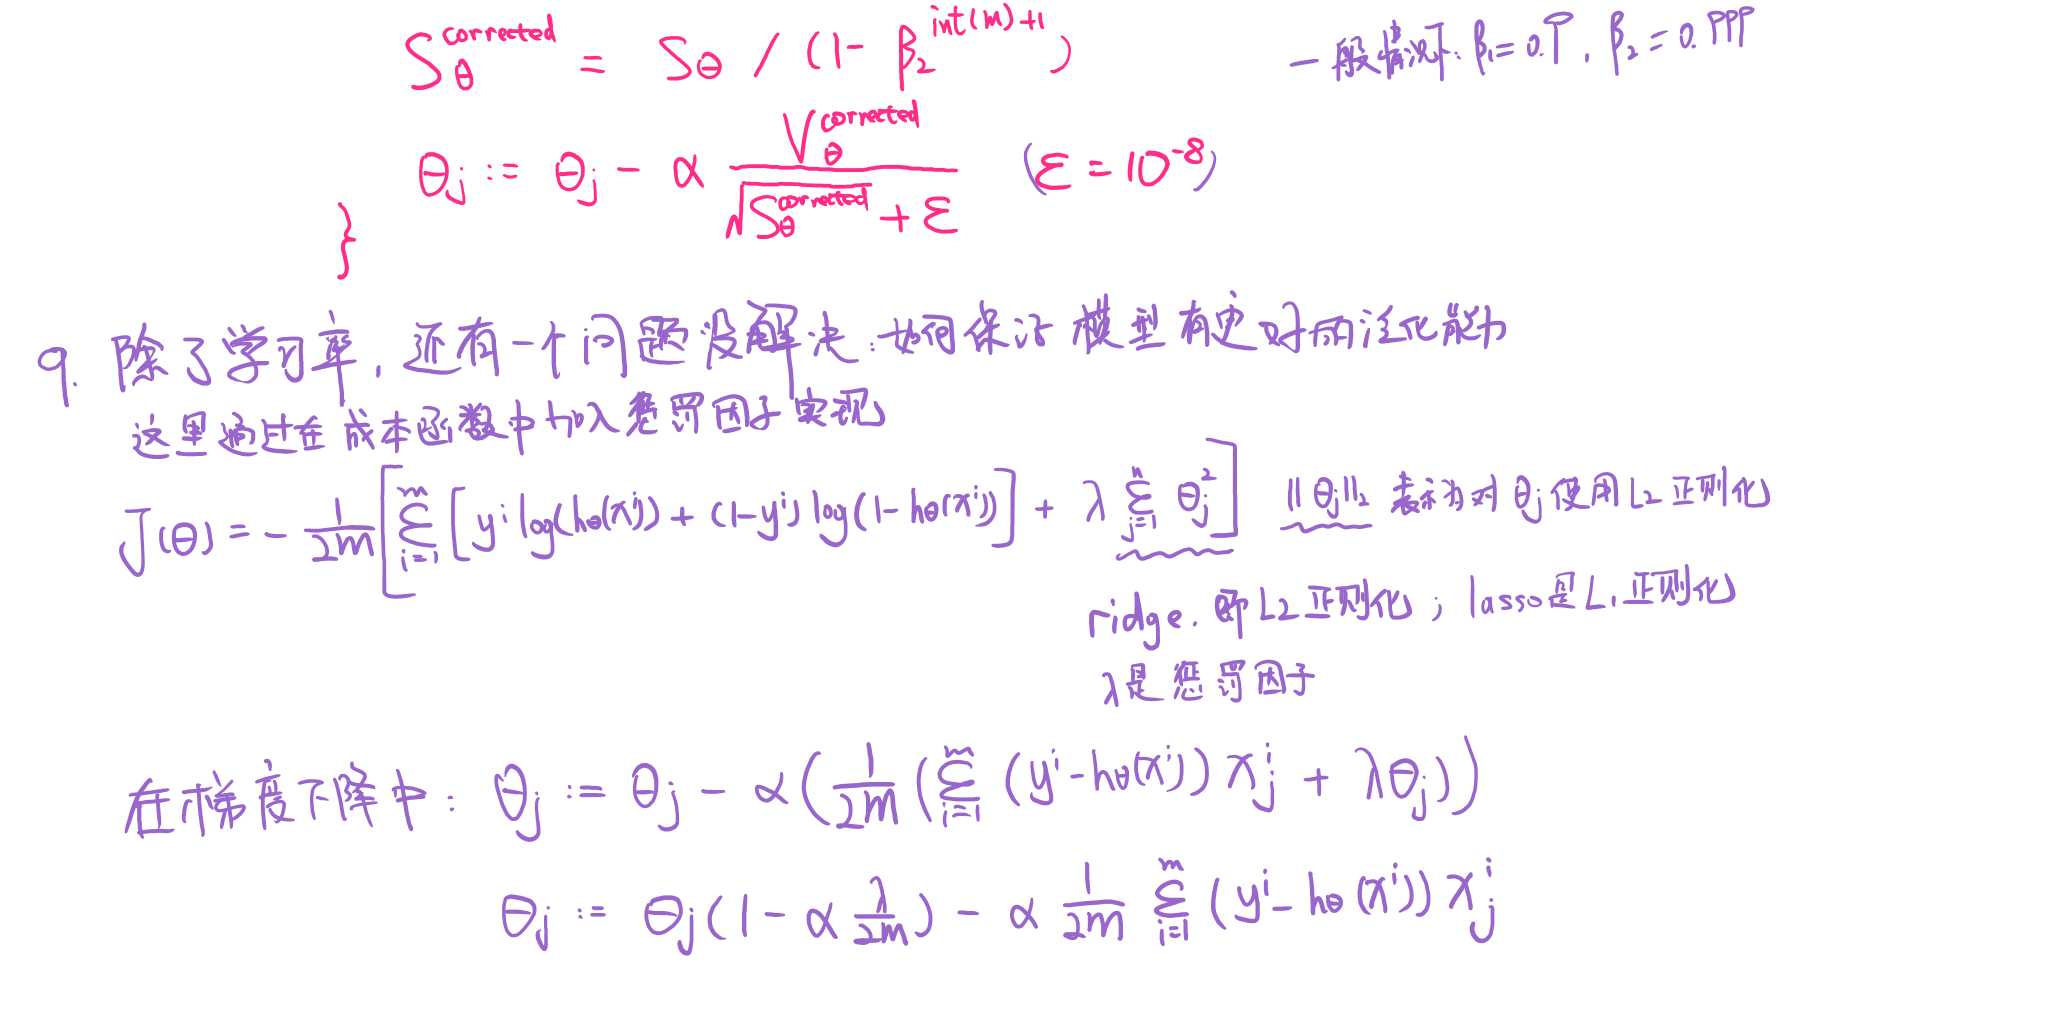 S_θ^corrected = S_θ / (1 - β₂^(int(m)+1))
一般情况下: β₁ = 0.9, β₂ = 0.999
θj := θj - α V_θ^corrected / (√(S_θ^corrected) + ε) (ε = 10⁻⁸)
}
9. 除了学习率, 还有一个问题没解决: 如何保证模型有更好的泛化能力
这里通过在成本函数中加入惩罚因子实现
J(θ) = - 1/2m [ Σ_{i=1}^m [ yⁱ log(hθ(xⁱ)) + (1-yⁱ) log(1-hθ(xⁱ)) ] + λ Σ_{j=1}^n θj² ] ||θj||₂ 表示为对 θj 使用L2正则化
ridge. 即L2正则化; lasso是L1正则化
λ是惩罚因子
在梯度下降中: θj := θj - α( 1/2m ( Σ_{i=1}^m (yⁱ - hθ(xⁱ)) xjⁱ + λθj ))
θj := θj (1 - α λ/2m) - α 1/2m Σ_{i=1}^m (yⁱ - hθ(xⁱ)) xjⁱ